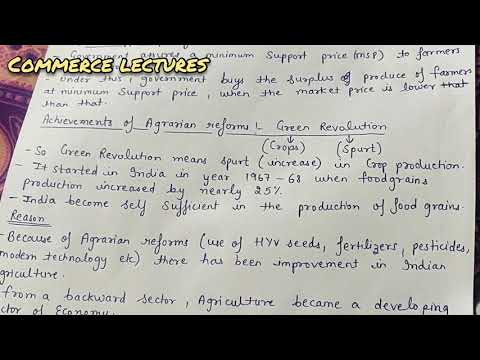 COMMERCE LECTURES
Government assures a minimum Support price (MSP) to farmers
- Under this, government buys the surplus of produce of farmers
at minimum Support price, when the market price is lower that
than that.
Achievements of Agrarian reforms L Green Revolution
(Crops) (Spurt)
- So Green Revolution means spurt (increase) in Crop production.
- It started in India in year 1967-68 when foodgrains
production increased by nearly 25%.
- India become self Sufficient in the production of food grains.
Reason
- Because of Agrarian reforms (use of HYV seeds, fertilizers, pesticides,
modern technology etc) there has been improvement in Indian
griculture.
from a backward sector, Agriculture became a developing
ctor of Economy.